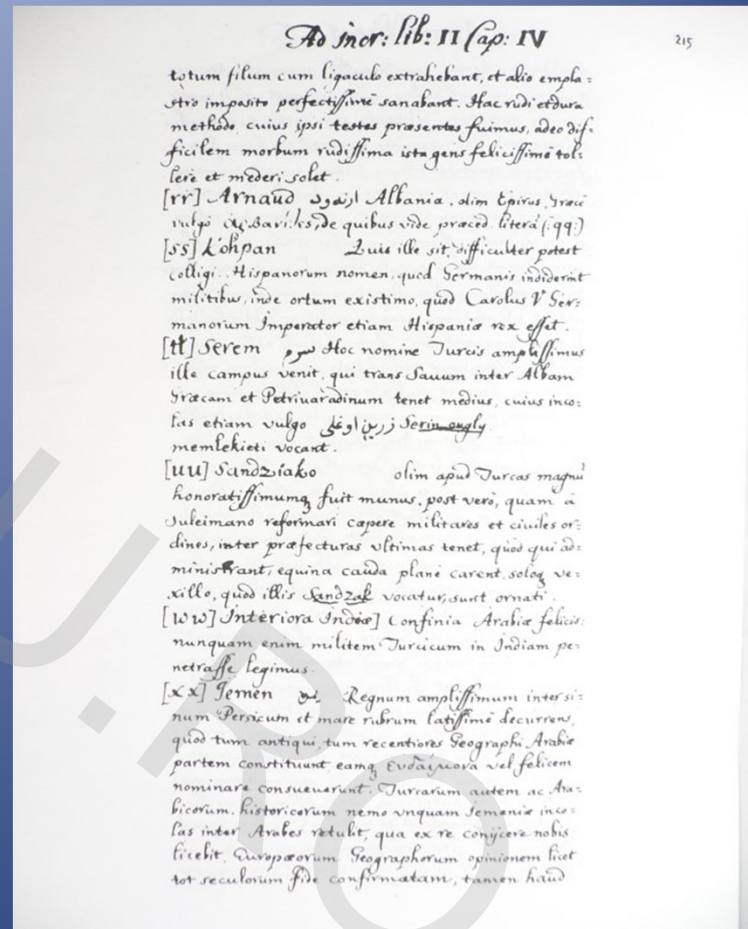 Ad incr: lib: II Cap: IV
215
totum filum cum ligaculo extrahebant, et alio empla=
stro imposito perfectissimè sanabant. Hac rudi et dura
methodo, cuius ipsi testes præsentes fuimus, adeo dif=
ficilem morbum rudissima ista gens felicissimè tol=
lere et mederi solet.
[rr] Arnaud ارنعود Albania, olim Epirus, Græcè
vulgò de quibus vide præced. literâ (:qq:)
[ss] Kohpan Quis ille sit, difficulter potest
colligi. Hispanorum nomen, quod Germanis indiderint
militibus, inde ortum existimo, quod Carolus V Ger=
manorum Imperator etiam Hispaniæ rex esset.
[tt] Serem سرم Hoc nomine Turcis amplissimus
ille campus venit, qui trans Sauum inter Albam
Græcam et Petriuaradinum tenet medius, cuius inco=
las etiam vulgo زرين اوغلى Serin ougly
memlekieti vocant.
[uu] Sandziako olim apud Turcas magnū
honoratissimumq fuit munus, post verò, quam à
Suleimano reformari cæpere militares et ciuiles or=
dines, inter præfecturas vltimas tenet, quod qui ad=
ministrant, equina cauda planè carent, soloq ve=
xillo, quod illis Sandzak vocatur, sunt ornati.
[ww] Interiora Indiæ] Confinia Arabiæ felicis:
nunquam enim militem Turcicum in Indiam pe=
netrasse legimus.
[xx] Jemen يمن Regnum amplissimum inter si=
num Persicum et mare rubrum latissimè decurrens,
quod tum antiqui, tum recentiores Geographi Arabiæ
partem constituunt, eamq Ευδαίμονα vel felicem
nominare consueuerunt. Turcarum autem ac Ara=
bicorum historicorum nemo vnquam Jemaniæ inco=
las inter Arabes retulit, qua ex re conijcere nobis
licebit, Europæorum Geographorum opinionem licet
tot seculorum fide confirmatam, tamen haud